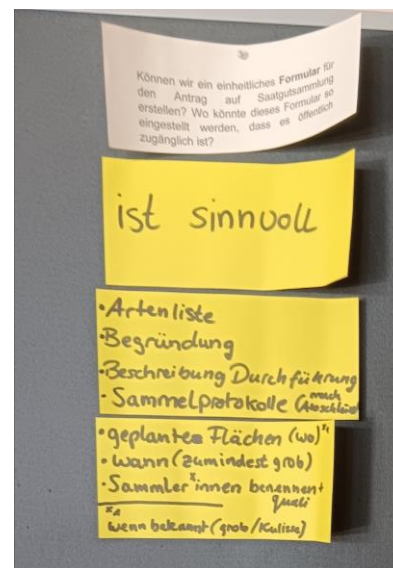 Können wir ein einheitliches Formular für
den Antrag auf Saatgutsammlung
erstellen? Wo könnte dieses Formular so
eingestellt werden, dass es öffentlich
zugänglich ist?
ist sinnvoll
• Artenliste
• Begründung
• Beschreibung Durchführung
• Sammelprotokolle (nach Abschluss)
• geplante Flächen (wo) x1
• wann (zumindest grob)
• Sammler*innen benennen +
Quali
x1
wenn bekannt (grob/Kulisse)